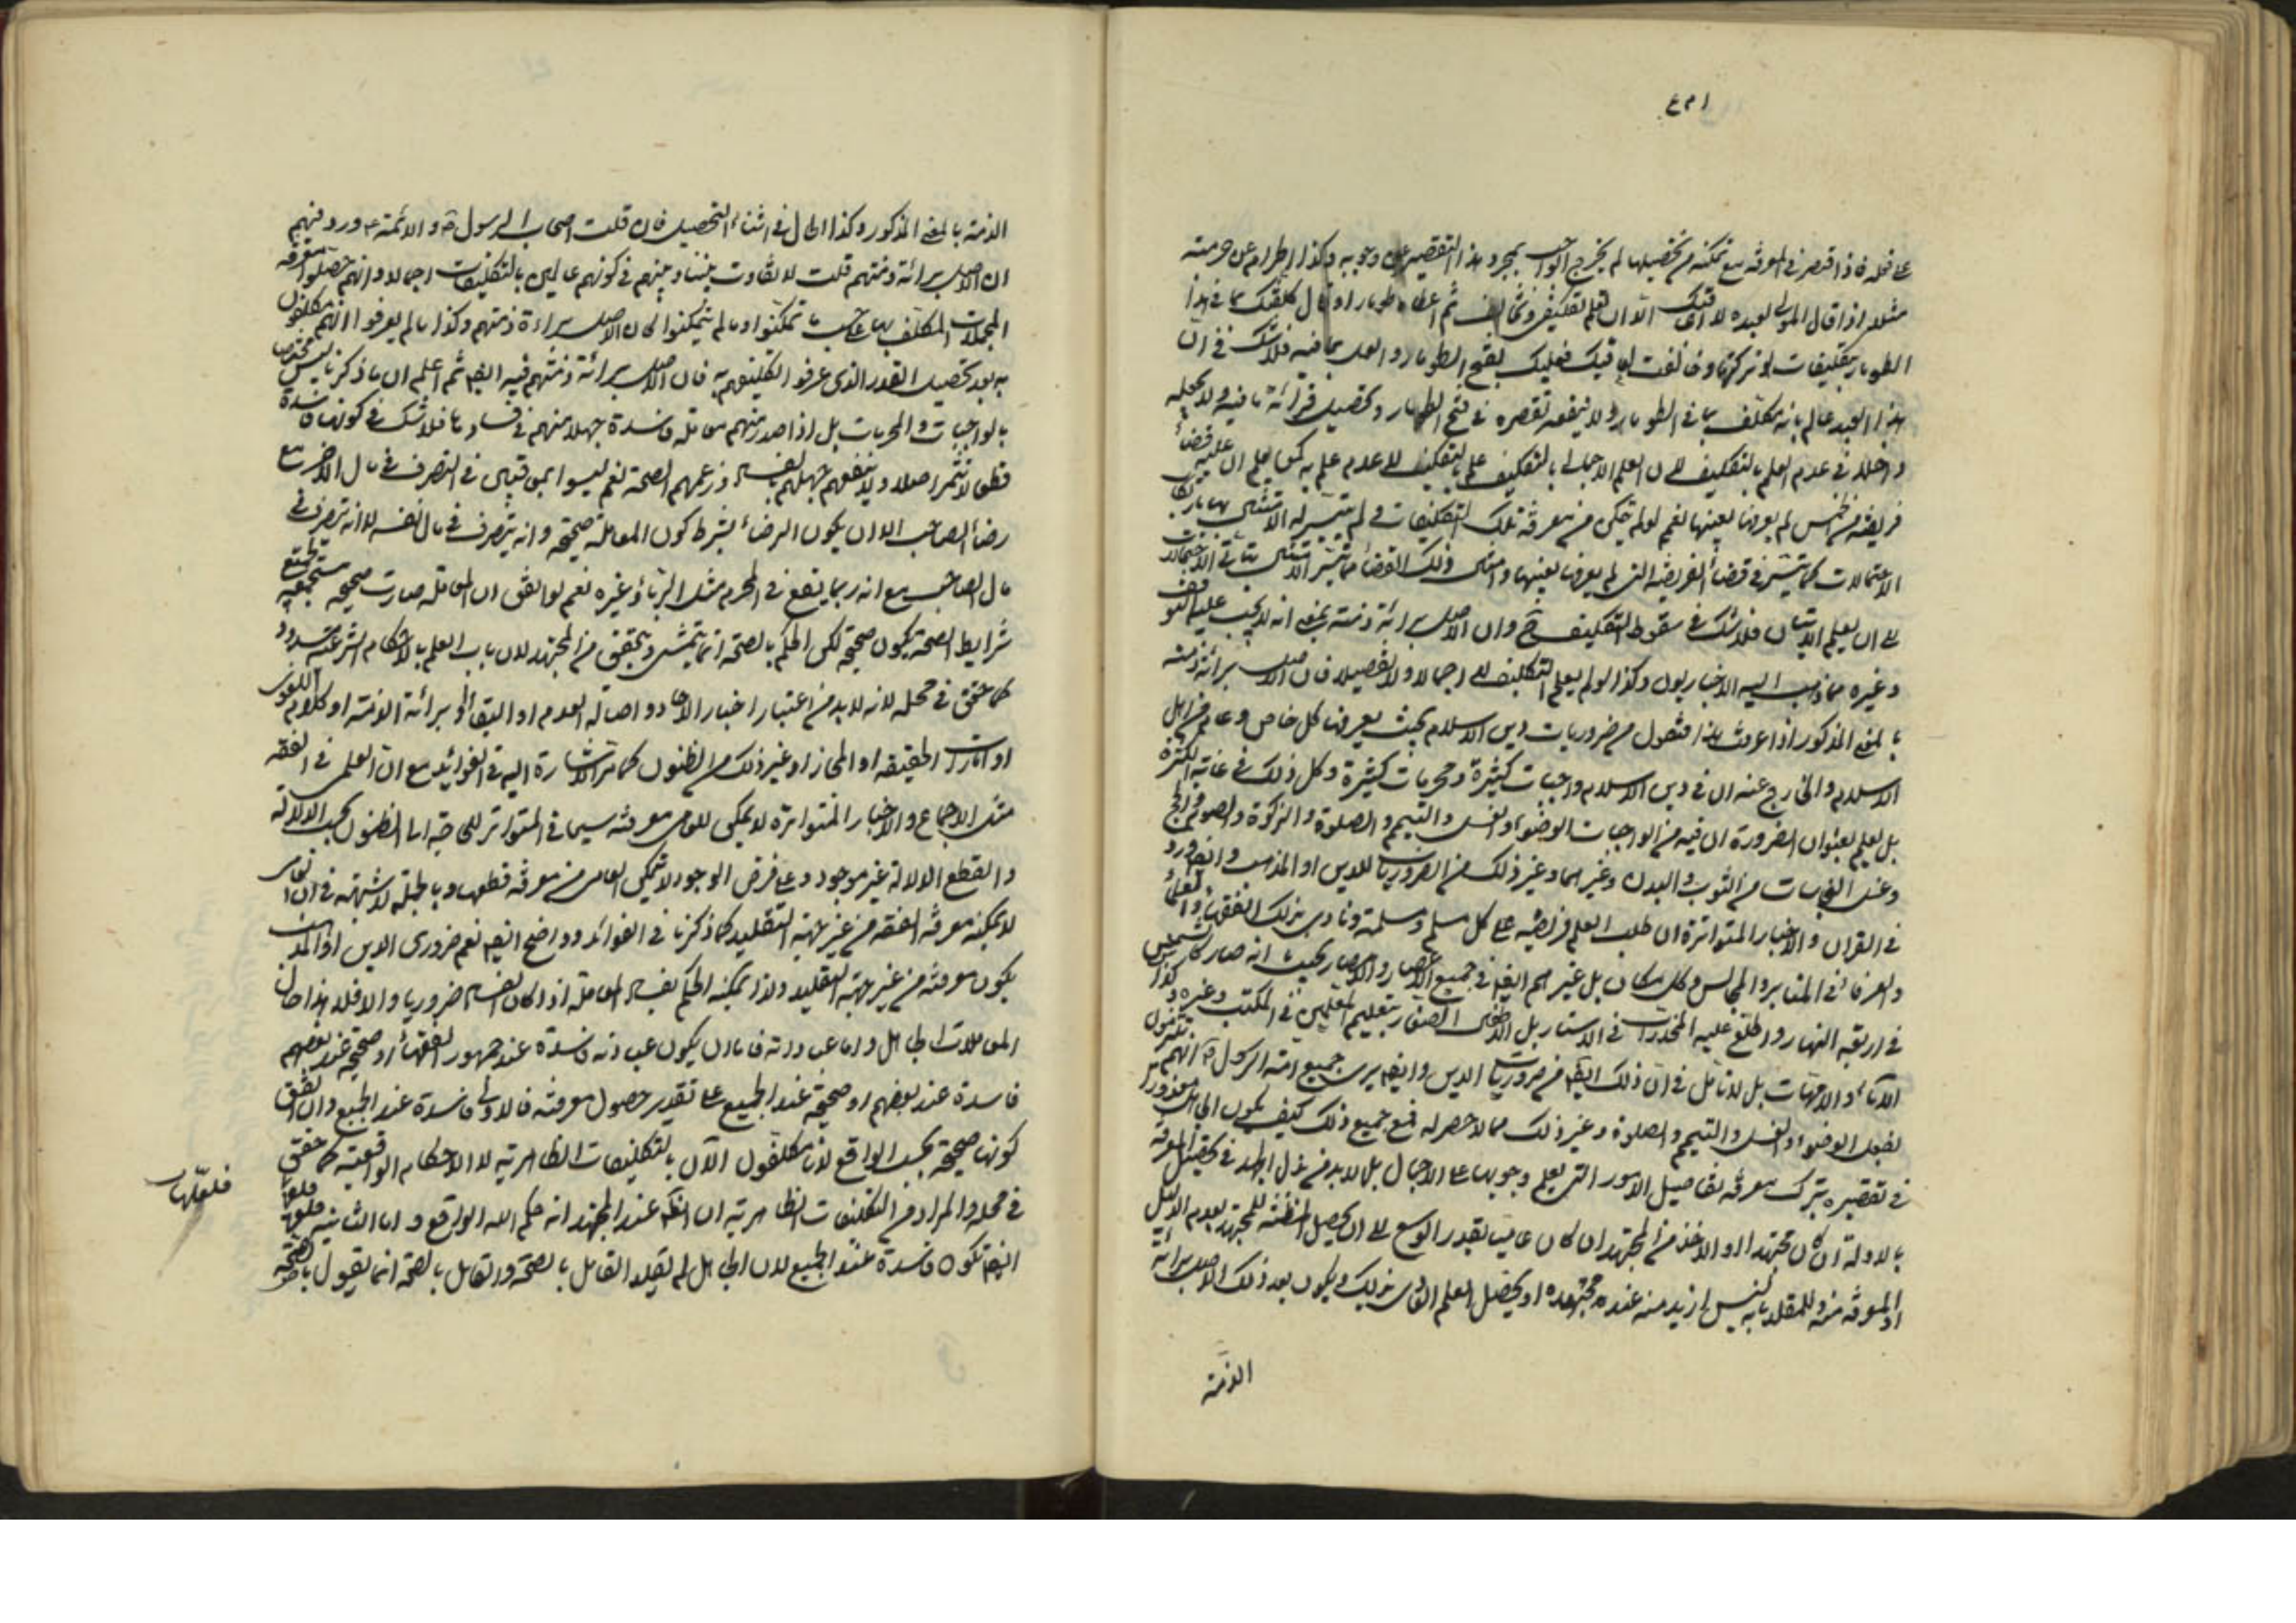 على فعله فاذا قصر في المعرفة مع تمكنه من تحصيلها لم يخرج الواجب بمجرد هذا التقصير عن وجوبه وكذا الحرام عن حرمته
مثلا اذا قال المولى لعبده لا اعاقبك الا ان تعلم تكليفي وتخالف ثم اعطاه طومارا وقال كلفتك بما في هذا
الطومار بتكليفات لو تركتها وخالفت اعاقبك فعليك بفتح الطومار والعمل بما فيه فلا شك في ان
هذا العبد عالم بانه مكلف بما في الطومار ولا ينفعه تقصيره في فتح الطومار وتحصيل قرائة ما فيه ولا يجعله
داخلا في عدم العلم بالتكليف لان العلم الاجمالي بالتكليف علم بالتكليف لا عدم علم به كمن يعلم ان عليه قضاء
فريضة من الخمس لم يعرفها بعينها نعم لو لم يتمكن من معرفة تلك التكليفات ولم يتيسر له الامتثال بها بارتكاب
الاحتمالات كما يتيسر في قضاء الفريضة التي لم يعرفها بعينها وامثال ذلك القضاء مما يتيسر الامتثال باتيان الاحتمالات
الى ان يعلم الاتيان فلا شك في سقوط التكليف ح وان الاصل برائة ذمته بمعنى انه لا يجب عليه التوقف
وغيره مما ذهب اليه الاخباريون وكذا لو لم يعلم التكليف لا اجمالا ولا تفصيلا فان الاصل برائة ذمته
بالمعنى المذكور اذا عرفت هذا فنقول من ضروريات دين الاسلام بحيث يعرفها كل خاص وعام من اهل
الاسلام والخارج عنه ان في دين الاسلام واجبات كثيرة ومحرمات كثيرة وكل ذلك في غاية الكثرة
بل يعلم بعنوان الضرورة ان فيه من الواجبات الوضوء والغسل والتيمم والصلوة والزكوة والصوم والحج
وغسل النجاسات من الثوب والبدن وغيرهما وغير ذلك من الضروريات للدين او المذهب وايضا ورد
في القران والاخبار المتواترة ان طلب العلم فريضة على كل مسلم ومسلمة ونادى بذلك الفقهاء والعلماء
والعرفاء في المنابر والمجالس وكل مكان بل غيرهم ايضا في جميع الاعصار والامصار بحيث انه صار كالشمس
في رابعة النهار واطلع عليه المخدرات في الاستار بل الاطفال الصغار بتعليم المعلمين في المكتب وغيره وكذا
الاباء والامهات بل لا تامل في ان ذلك ايضا من ضروريات الدين وايضا يرى جميع امة الرسول ص انهم مكلفون
بفعل الوضوء والغسل والتيمم والصلوة وغير ذلك مما لا حصر له فمع جميع ذلك كيف يكون الجاهل معذورا
في تقصيره بترك معرفة تفاصيل الامور التي يعلم وجوبها على الاجمال بل لا بد من بذل الجهد في تحصيل المعرفة
بالادلة ان كان مجتهدا او الاخذ من المجتهد ان كان عاميا بقدر الوسع الى ان يحصل المظنة للمجتهد بعدم الدليل
او المعرفة منه وللمقلد بانه ليس ازيد منه عنده مجتهده او يحصل العلم العادي بذلك ويكون بعد ذلك الاصل برائة
الذمة
الذمة بالمعنى المذكور وكذا الحال في اثناء التحصيل فان قلت اصحاب الرسول ص والائمة ع ورد منهم
ان الاصل برائة ذمتهم قلت لا تفاوت بيننا وبينهم في كونهم عالمين بالتكليفات اجمالا وانهم حصلوا معرفة
المجملات المكلف بها على حسب ما تمكنوا وما لم يتمكنوا كان الاصل براءة ذمتهم وكذا ما لم يعرفوا انهم مكلفون
به بعد تحصيل القدر الذي عرفوا تكليفهم به فان الاصل برائة ذمتهم فيه ايضا ثم اعلم ان ما ذكرنا ليس مختصا
بالواجبات والمحرمات بل اذا صدر منهم معاملة فاسدة جهلا منهم في فسادها فلا شك في كونها فاسدة
قطعا لا تثمر اصلا ولا ينفعهم جهلهم بالفساد وزعمهم الصحة نعم ليسوا بمعاقبين في التصرف في مال الاخر مع
رضاء الصاحب الا ان يكون الرضاء بشرط كون المعاملة صحيحة وانه يتصرف في مال نفسه لا انه يتصرف في
مال الصاحب مع انه ربما يقع في المحرم مثل الربا وغيره نعم لو اتفق ان المعاملة صارت صحيحة مستجمعة لجميع
شرايط الصحة تكون صحيحة لكن الحكم بالصحة انما يتمشى ويتحقق من المجتهد لان باب العلم بالاحكام الشرعية مسدود
كما حقق في محله لانه لا بد من اعتبار اخبار الاحاد واصالة العدم او البقاء او برائة الذمة او كلام اللغوي
او امارات الحقيقة او المجاز او غير ذلك من الظنون كما مر الاشارة اليه في الفوائد مع ان العلمي في الفقه
مثل الاجماع والاخبار المتواترة لا يمكن للعامي معرفته سيما في المتواتر للحاجة الى الظنون بحسب الدلالة
والقطع الدلالة غير موجود وعلى فرض الوجود لا يتمكن العامي من معرفة قطعها وبالجملة لا شبهة في ان العامي
لا يمكنه معرفة الفقه من غير جهة التقليد كما ذكرنا في الفوائد وواضح ايضا نعم ضروري الدين او المذهب
يكون معرفته من غير جهة التقليد ولذا يمكنه الحكم بفساد المعاملة اذا كان الفساد ضروريا والا فلا هذا حال
المعاملات الجاهل واما عباداته فاما ان يكون عبادته فاسدة عند جمهور الفقهاء او صحيحة عند بعضهم
فاسدة عند بعضهم او صحيحة عند الجميع على تقدير حصول معرفته فالاولى فاسدة عند الجميع وان اتفق
كونها صحيحة بحسب الواقع لانا مكلفون الان بالتكليفات الظاهرية لا الاحكام الواقعية كما حقق
في محله والمراد من التكليفات الظاهرية ان الظن عند المجتهد انه حكم الله الواقع واما الثانية فلعلها
فلعلها
ايضا تكون فاسدة عند الجميع لان الجاهل لم يقلد القائل بالصحة والقائل بالصحة انما يقول بالصحة